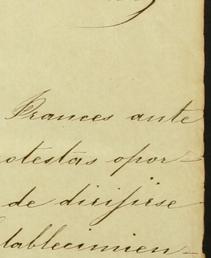 Frances ante
otestas opor-
de dirijirse
tablecimien-